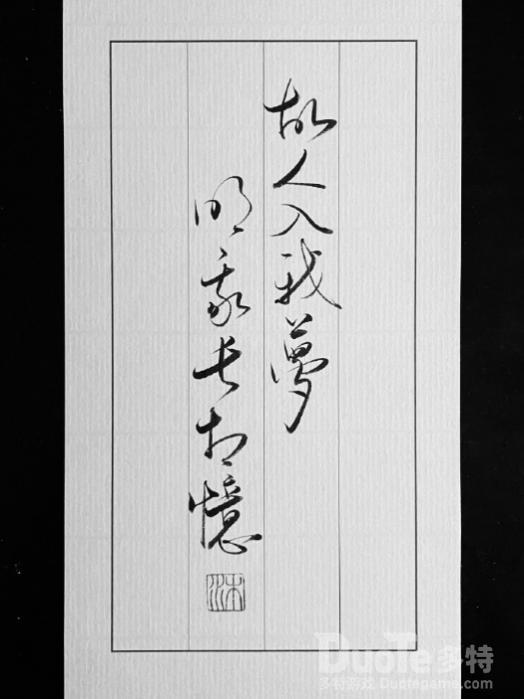 故人入我夢
明我长相憶
沐
DuoTe多特
多特游戏 Duotegame.com